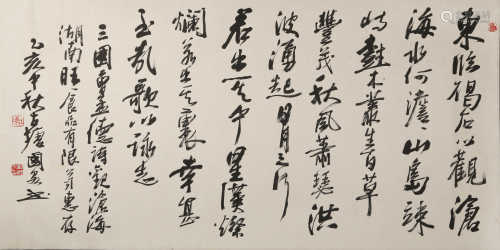 東臨碣石以觀滄
海水何澹〻山島竦
峙樹木叢生百草
豐茂秋風蕭瑟洪
波湧起日月之行
若出其中星漢燦
爛若出其裏幸甚
至哉歌以詠志
三國曹孟德詩觀滄海
湖南旺食品有限公司惠存
乙亥中秋國安書